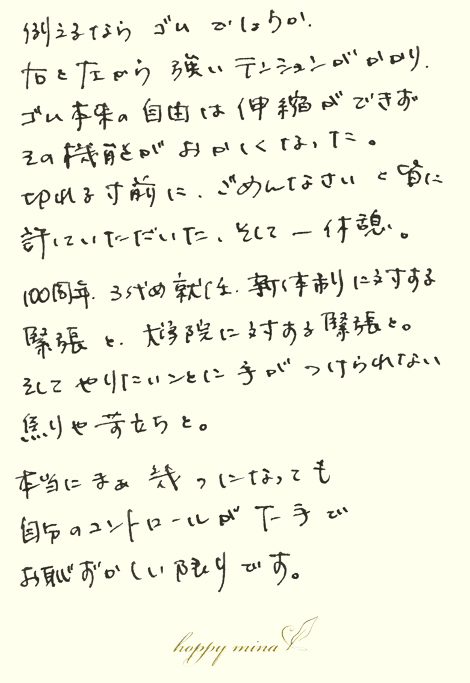 例えるなら ゴム でしょうか.
右と左から 強い テンションが かかり.
ゴム本来の 自由は 伸縮が できず
その機能が おかしくなった。
切れる寸前に、ごめんなさい と 皆に
許していただいた、そして 一休憩。
100周年. 3代め就任. 新体制に対する
緊張と、大学院に対する緊張と。
そして やりたいことに 手が つけられない
焦りや 苛立ちと。
本当にまぁ 幾つになっても
自分のコントロールが 下手で
お恥ずかしい限りです。
happy mina